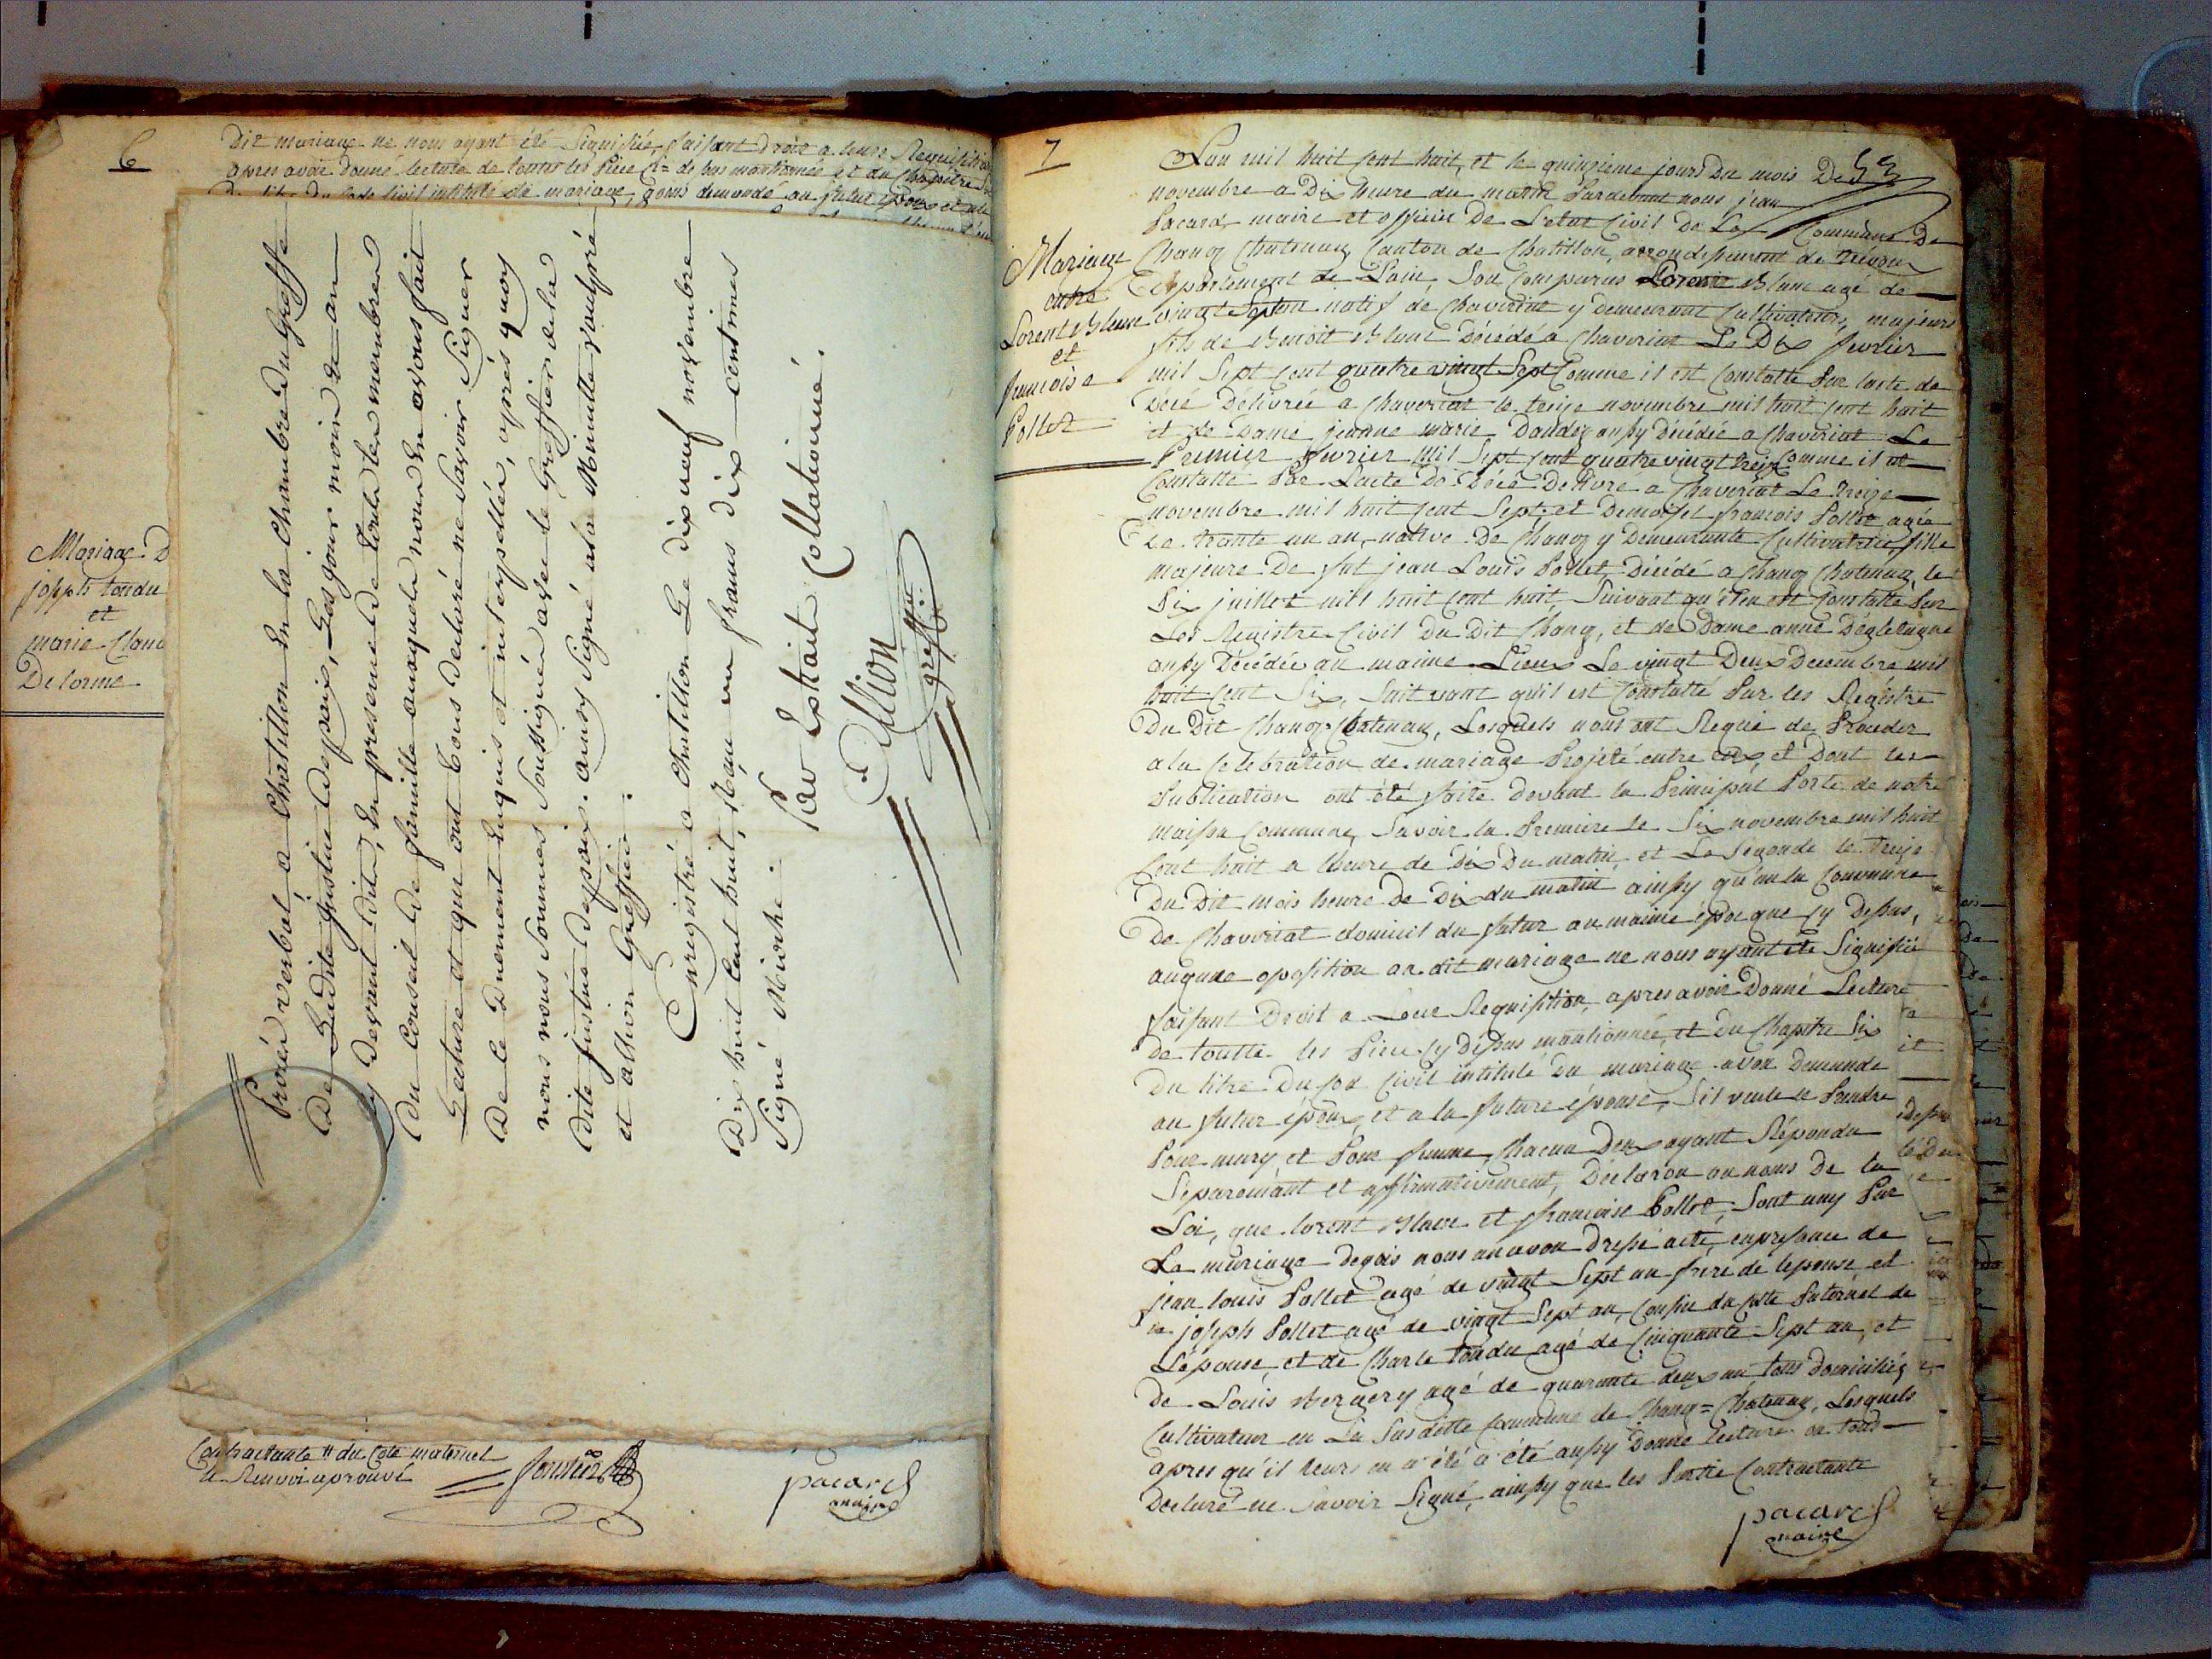 6
Dit mariage ne nous ayant été Signifiée, faisant droit a leurs Requisition
apres avoir donné lecture de toutes les Piece ci= de sus mantionnée et du Chapitre
du Code Civil intitulé du mariage, avons demandé au futur époux et a la
Mariage D
joseph tondu
et
marie Clau
Delorme
Procès verbal a Chatillon En la Chambre du Greffe
De Ladite justice de paix, Les jour mois et an
cy devant dits, En presence de toute les membres
du Conseil De famille auxquels nous En avons fait
Lecture et qui ont tous declaré ne Savoir Signer
de ce Duement Enquis et interpellés, après quoy
nous nous Sommes Soussignés avec le Greffier de la
dite justice de paix. ainsy Signé a la Minutte Vaulpré
et allion Greffier.
Enregistré a Chatillon Le dix neuf novembre
Dix huit Cent huit, Reçu un franc dix centimes
Signé Miviere.
Par Extrait Collationné.
Allion
greff.
Contractante # du Coté maternel
le Renvoi aprouvé
pacard
maire
7
53
Mariage
entre
Lorent Blanc
et
francoise
Pollet
Lan mil huit Cent huit, et le quinzieme jours Du mois De
novembre a Dix heure du matin Pardevant nous jean
Pacard, maire et officier De Letat Civil de La Commune De
Chanoz Chatenay Canton de Chatillon, arrondissement de trévoux
Departement de Lain, Son Comparus Lorent Blanc agé de
vingt Sept an natif de Chaveriat y demeurant Cultivateur, majeurs
fils de Benoit Blanc Décédé a Chaveriat Le Dix fevrier
mil Sept Cent quatre vingt Sept Comme il est Constatté Par lacte de
Décé Delivrée a Chaveriat le treize novembre mil huit Cent huit
et de Dame jeanne marie Daudez aussy Décédée a Chaveriat Le
Premier fevrier mil Sept Cent quatre vingt treize Comme il est
Constatté Par Lacte De Décé Delivré a Chaveriat Le treize
novembre mil huit Cent Sept et Demoisel francois Pollet agée
de trante un an, native De Chanoz y Demeurante Cultivatrice fille
majeure De fut jean Louis Pollet, Décédé a Chanoz Chatenay, le
Six juillet mil huit Cent huit, Suivant qu'il en est Constatté Sur
Les Registre Civil Du Dit Chanoz, et de Dame anne Degletagne
aussy Décédée au maime Lieux Le vingt Deux Decembre mil
huit Cent Six, Suit vant qu'il est Constatté Par les Registre
Du Dit Chanoz Chatenay, Lesquels nous ont Requi de Proceder
a la Celebration de mariage Projeté entre eux, et Dont les
Publication ont été faite Devant la Principal Porte de notre
maison Commune, Savoir la Premiere le Six novembre mil huit
Cent huit a lheure de Dix Du matin, et La Segonde le treize
Du Dit mois heure De Dix du matin ainsy qu'en la Commune
De Chaveriat domicil du futur au maime époque cy Dessus,
augune oposition au dit mariage ne nous ayant été Signifiée
faisant Droit a Leur Requisition, apres avoir Donné Lecture
de toutte les Piece cy Dessus mantionnée, et du Chapitre Six
Du titre Du Cod Civil intitulé Du mariage avon Demande
au futur époux, et a la future épouse, Sil veule se Prendre
Pour mary et Pour femme, Chacun Deux ayant Répondu
Séparement et affirmativement, Déclaron au noms De la
Loi, que lorent Blanc et francoise Pollet, Sont uny Par
Le mariage Dequis nous an avon Dressé acte, en presance de
jean louis Pollet agé de vingt Sept an frere de lepouse et
de joseph Pollet agé de vingt Sept an, Cousin du Coté Paternel de
Lépouse, et de Charle tondu agé de Cinquante Sept an, et
De Louis Bergery agé de quarante deux an tous domiciliés
Cultivateur en La Susditte Commune de Chanoz=Chatenay, Lesquels
apres qu'il leurs en a été a été aussy Donné lecture on tous
Declaré ne Savoir Signé, ainsy que les Partie Contractante
pacard
maire